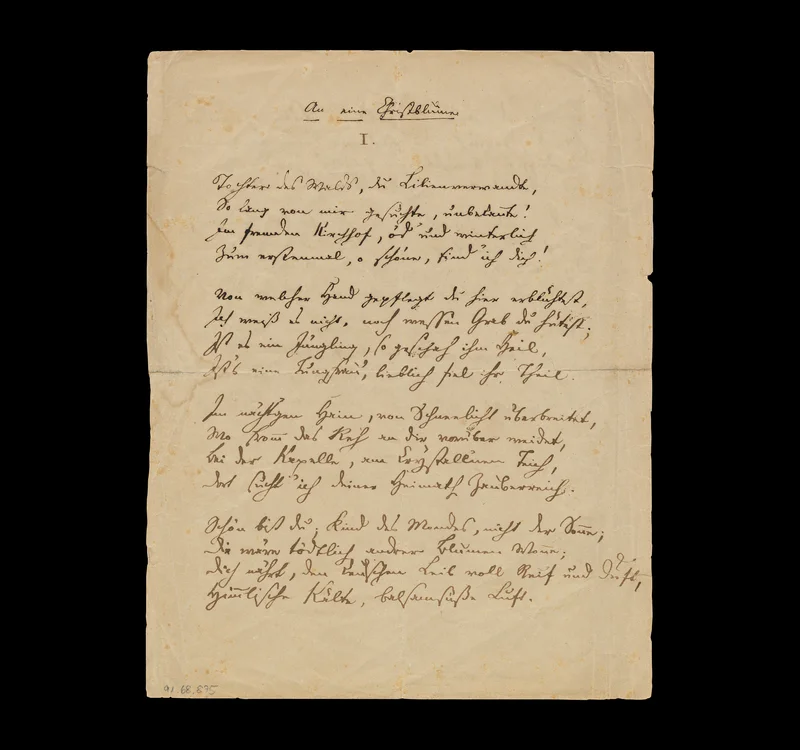 An eine Christblume
I.
Tochter des Walds, du Lilienverwandte,
So lang von mir gesuchte, unbekante!
Im fremden Kirchhof, öd' und winterlich
Zum erstenmal, o schöne, find' ich dich!
Von welcher Hand gepflegt du hier erblühtest,
Ich weiß es nicht, noch wessen Grab du hütest;
Ist es ein Jüngling, so geschah ihm Heil,
Ist's eine Jungfrau, lieblich fiel ihr Theil.
Im nächtgen Hain, von Schneelicht überbreitet,
Wo fromm das Reh an dir vorüber weidet,
Bei der Kapelle, am krystallnen Teich,
Dort sucht' ich deiner Heimath Zauberreich.
Schön bist du, Kind des Mondes, nicht der Sonne;
Dir wäre tödtlich andrer Blumen Wonne;
Dich nährt, den keuschen Leib voll Reif und Duft,
Himmlische Kälte, balsamsüße Luft.